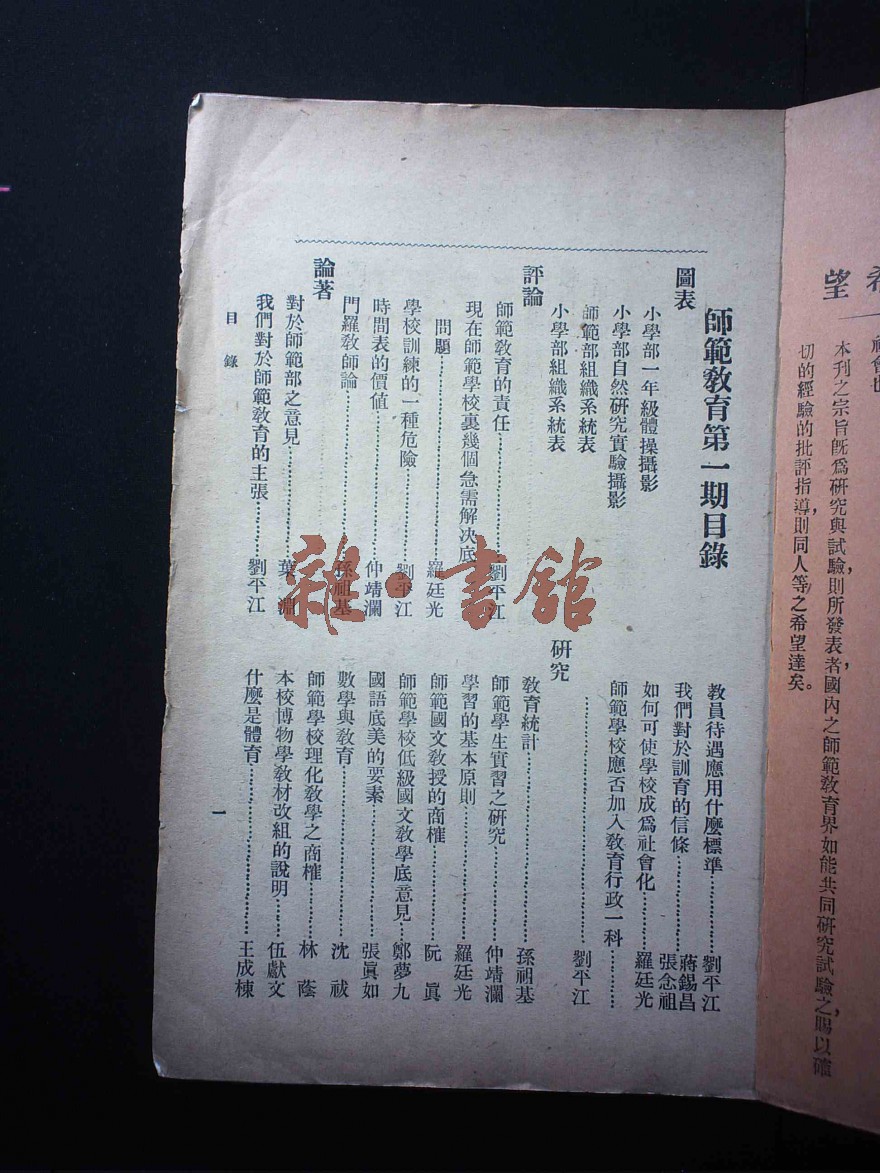 希望
社會也
本刊之宗旨旣爲硏究與試驗,則所發表者,國內之師範敎育界如能共同硏究試驗之,賜以確
切的經驗的批評指導,則同人等之希望達矣。
師範敎育第一期目錄
圖表
小學部一年級體操攝影
小學部自然硏究實驗攝影
師範部組織系統表
小學部組織系統表
評論
師範敎育的責任……劉平江
現在師範學校裏幾個急需解決底
問題……羅廷光
學校訓練的一種危險……劉平江
時間表的價値……仲靖瀾
門羅敎師論……孫祖基
論著
對於師範部之意見……葉淵
我們對於師範敎育的主張……劉平江
敎員待遇應用什麼標準……劉平江
我們對於訓育的信條……蔣錫昌 張念祖
如何可使學校成爲社會化……羅廷光
師範學校應否加入敎育行政一科……
……劉平江
硏究
敎育統計……孫祖基
師範學生實習之硏究……仲靖瀾
學習的基本原則……羅廷光
師範國文敎授的商榷……阮眞
師範學校低級國文敎學底意見……鄭夢九
國語底美的要素……張眞如
數學與敎育……沈祓
師範學校理化敎學之商榷……林蔭
本校博物學敎材改組的說明……伍獻文
什麼是體育……王成棟
目錄
一
雜·書館